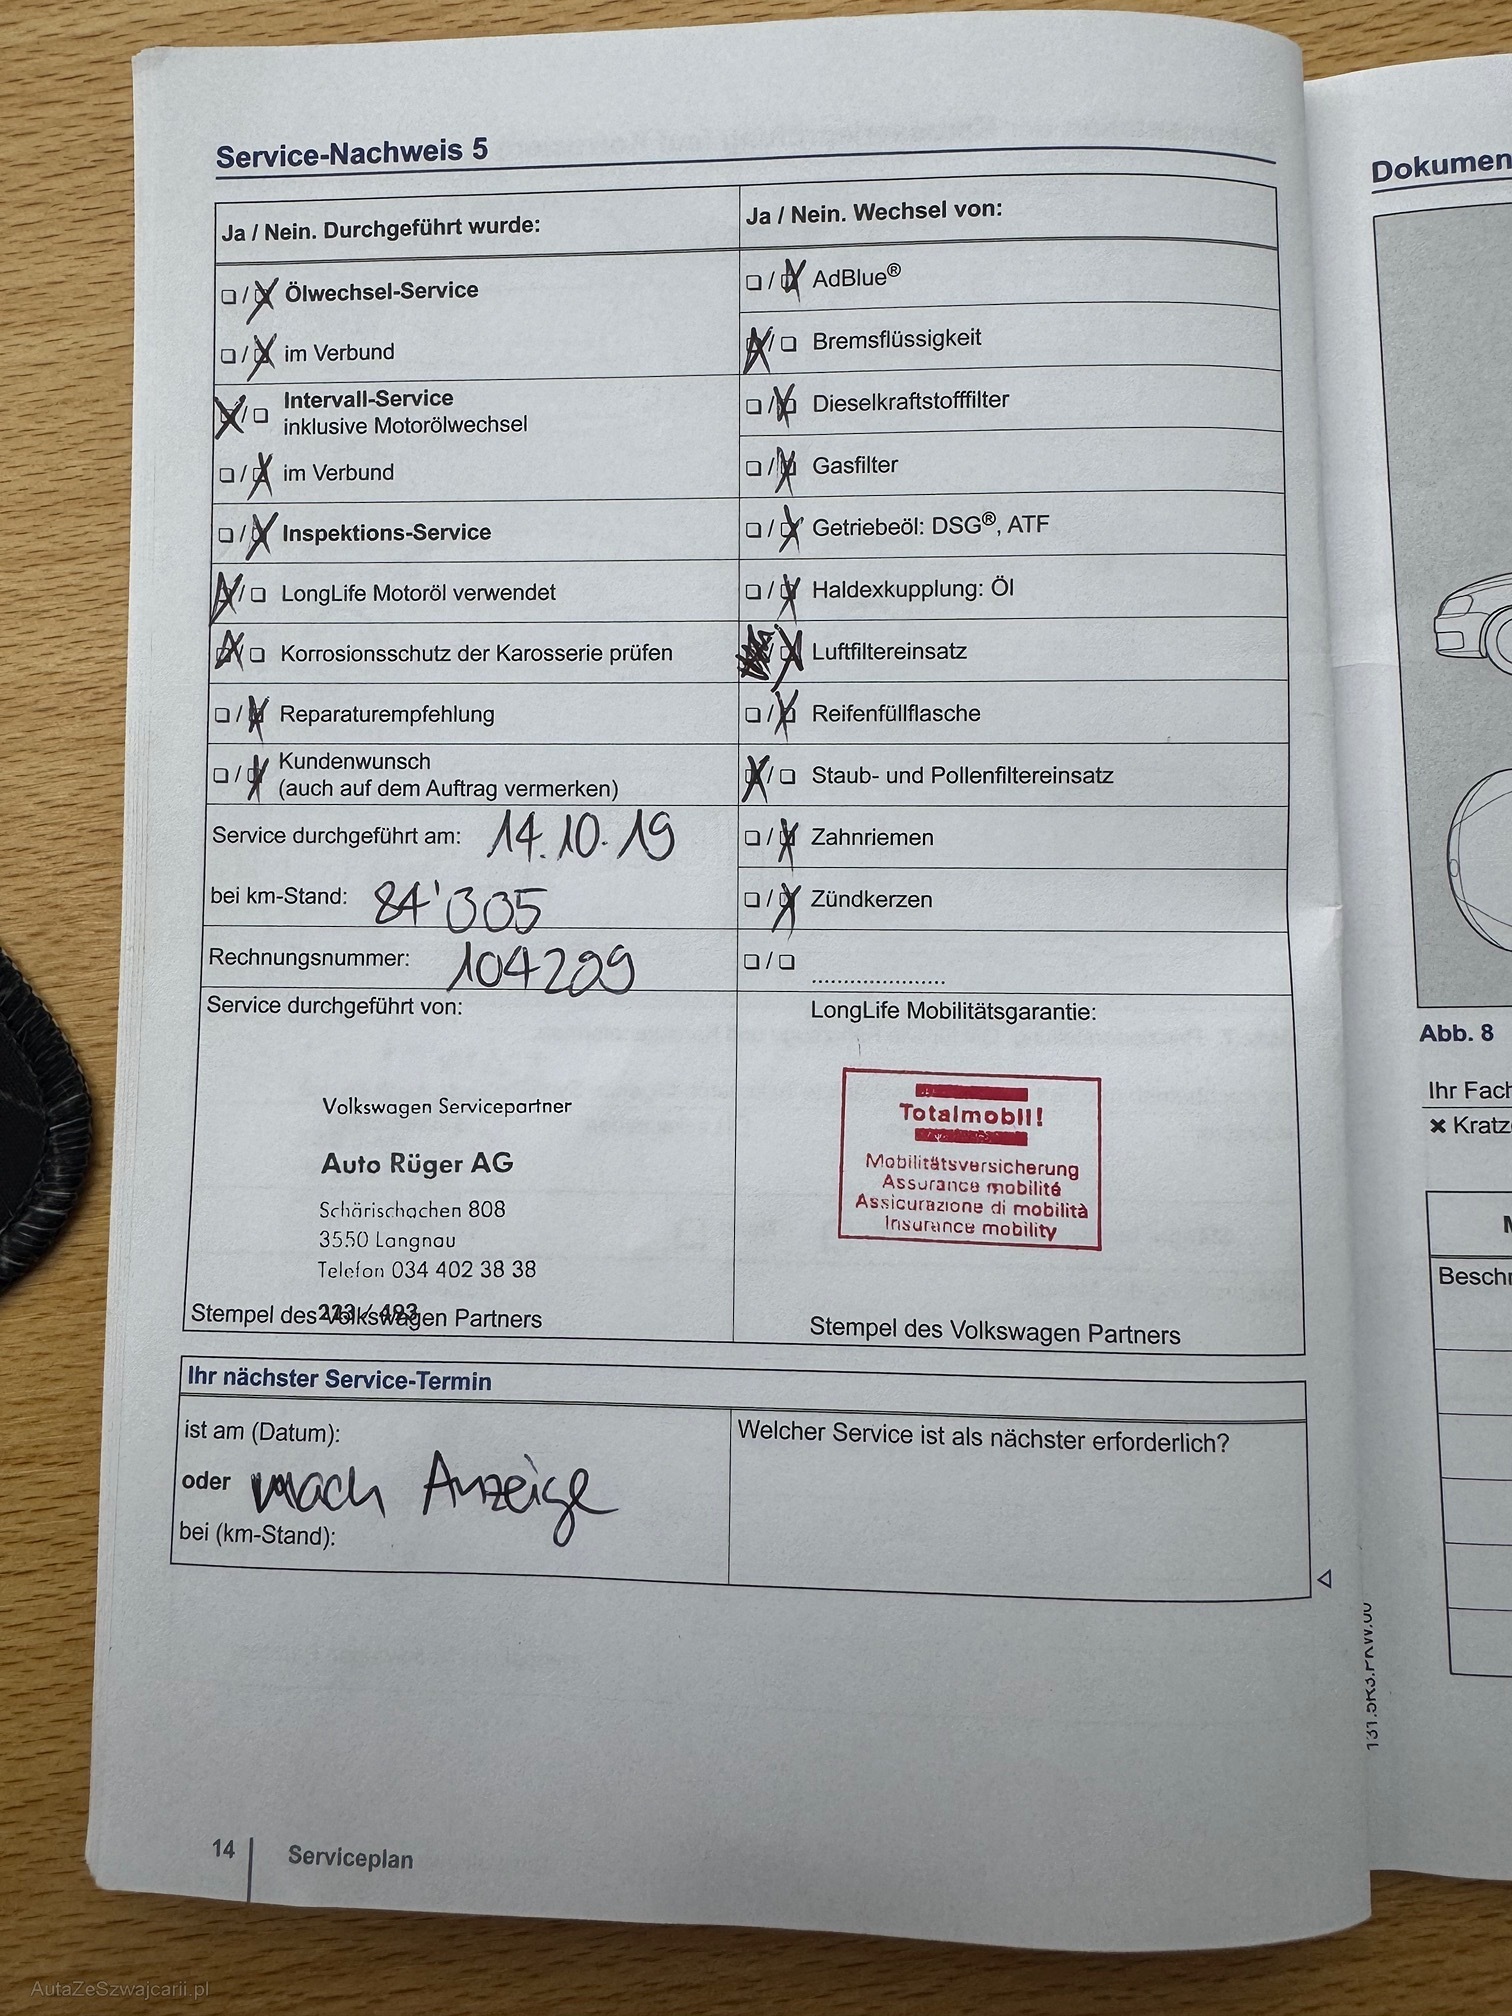 Service-Nachweis 5
Ja / Nein. Durchgeführt wurde:
☐ / ☒ Ölwechsel-Service
☐ / ☒ im Verbund
☒ / ☐ Intervall-Service
inklusive Motorölwechsel
☐ / ☒ im Verbund
☐ / ☒ Inspektions-Service
☒ / ☐ LongLife Motoröl verwendet
☒ / ☐ Korrosionsschutz der Karosserie prüfen
☐ / ☒ Reparaturempfehlung
☐ / ☒ Kundenwunsch
(auch auf dem Auftrag vermerken)
Service durchgeführt am: 14.10.19
bei km-Stand: 84'005
Rechnungsnummer: 104209
Ja / Nein. Wechsel von:
☐ / ☒ AdBlue®
☒ / ☐ Bremsflüssigkeit
☐ / ☒ Dieselkraftstofffilter
☐ / ☒ Gasfilter
☐ / ☒ Getriebeöl: DSG®, ATF
☐ / ☒ Haldexkupplung: Öl
☒ / ☒ Luftfiltereinsatz
☐ / ☒ Reifenfüllflasche
☒ / ☐ Staub- und Pollenfiltereinsatz
☐ / ☒ Zahnriemen
☐ / ☒ Zündkerzen
☐ / ☐ .....................
Service durchgeführt von:
Volkswagen Servicepartner
Auto Rüger AG
Schärischachen 808
3550 Langnau
Telefon 034 402 38 38
Stempel des Volkswagen Partners
LongLife Mobilitätsgarantie:
Totalmobil!
Mobilitätsversicherung
Assurance mobilité
Assicurazione di mobilità
Insurance mobility
Stempel des Volkswagen Partners
Ihr nächster Service-Termin
ist am (Datum):
oder nach Anzeige
bei (km-Stand):
Welcher Service ist als nächster erforderlich?
14 Serviceplan
Dokumen
Abb. 8
Ihr Fach
✖ Kratz
Beschr
AutaZeSzwajcarii.pl